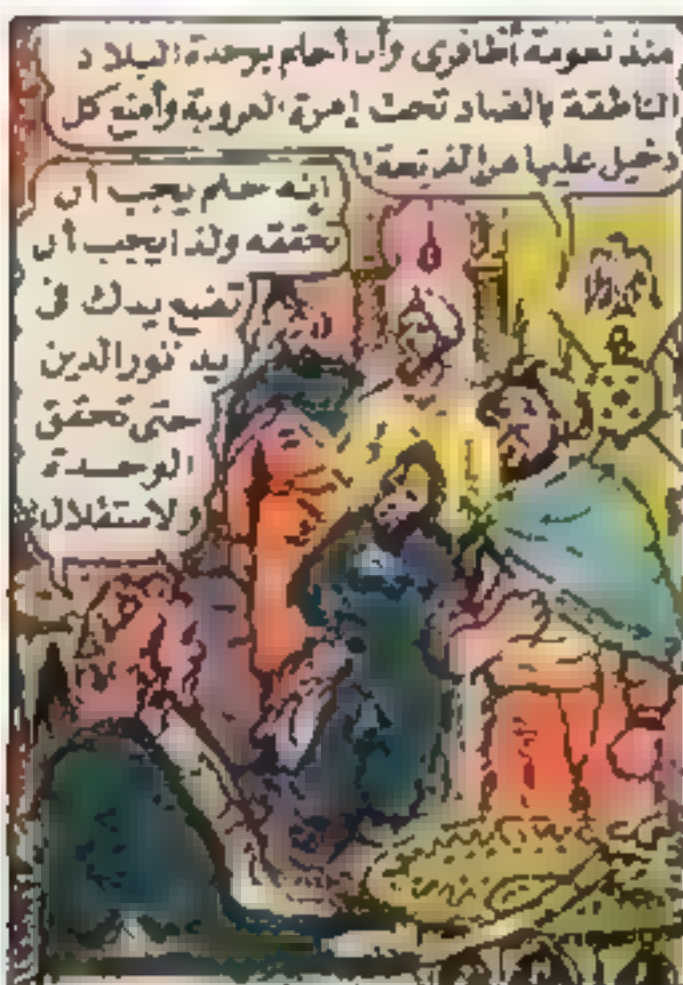 منذ نعومة أظافرى وأنا أحلم بوحدة البلاد
الناطقة بالضاد تحت إمرة العروبة وأمنع كل
دخيل عليها من الفرنجة
إنه حلم يجب أن
نحققه ولذا يجب أن
تضع يدك فى
يد نور الدين
حتى تحقق
الوحدة
ولاستقلال